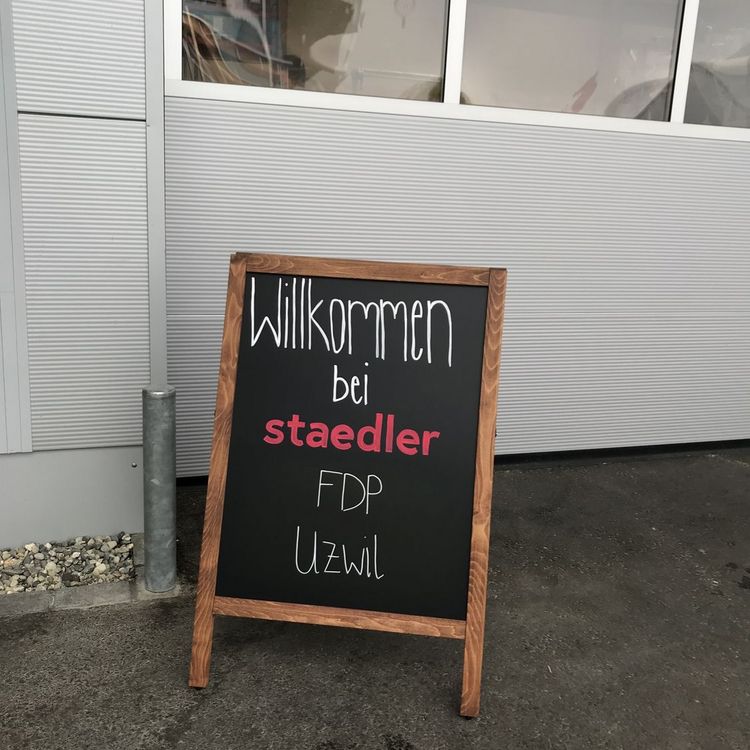 Willkommen
bei
staedler
FDP
Uzwil